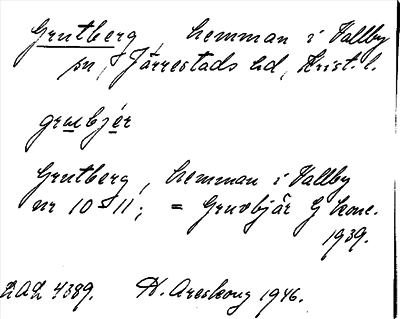 Grutberg, hemman i Vallby
sn, Järrestads hd, Krist. l.
grubjér
Grutberg, hemman i Vallby
nr 10 o 11; = Gruvbjär G kone.
1939.
LAL 4389. H. Areskoug 1946.